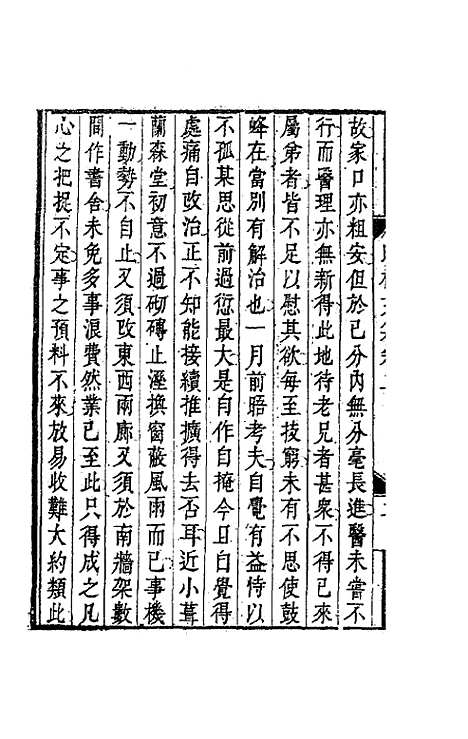 故家口亦粗安但於己分內無分毫長進醫未嘗不
行而醫理亦無新得此地待老兄者甚衆不得已來
屬弟者皆不足以慰其欲每至技窮未有不思使鼓
峰在當別有解治也一月前晤考夫自覺有益恃以
不孤某思從前過愆最大是自作自掩今日白覺得
處痛自攻治正不知能接續推擴得去否耳近小葺
蘭森堂初意不過砌磚止溼換窗蔽風雨而已事機
一動勢不自止又須改東西兩廊又須於南牆架數
間作書舍未免多事浪費然業已至此只得成之凡
心之把捉不定事之預料不來放易收難大約類此